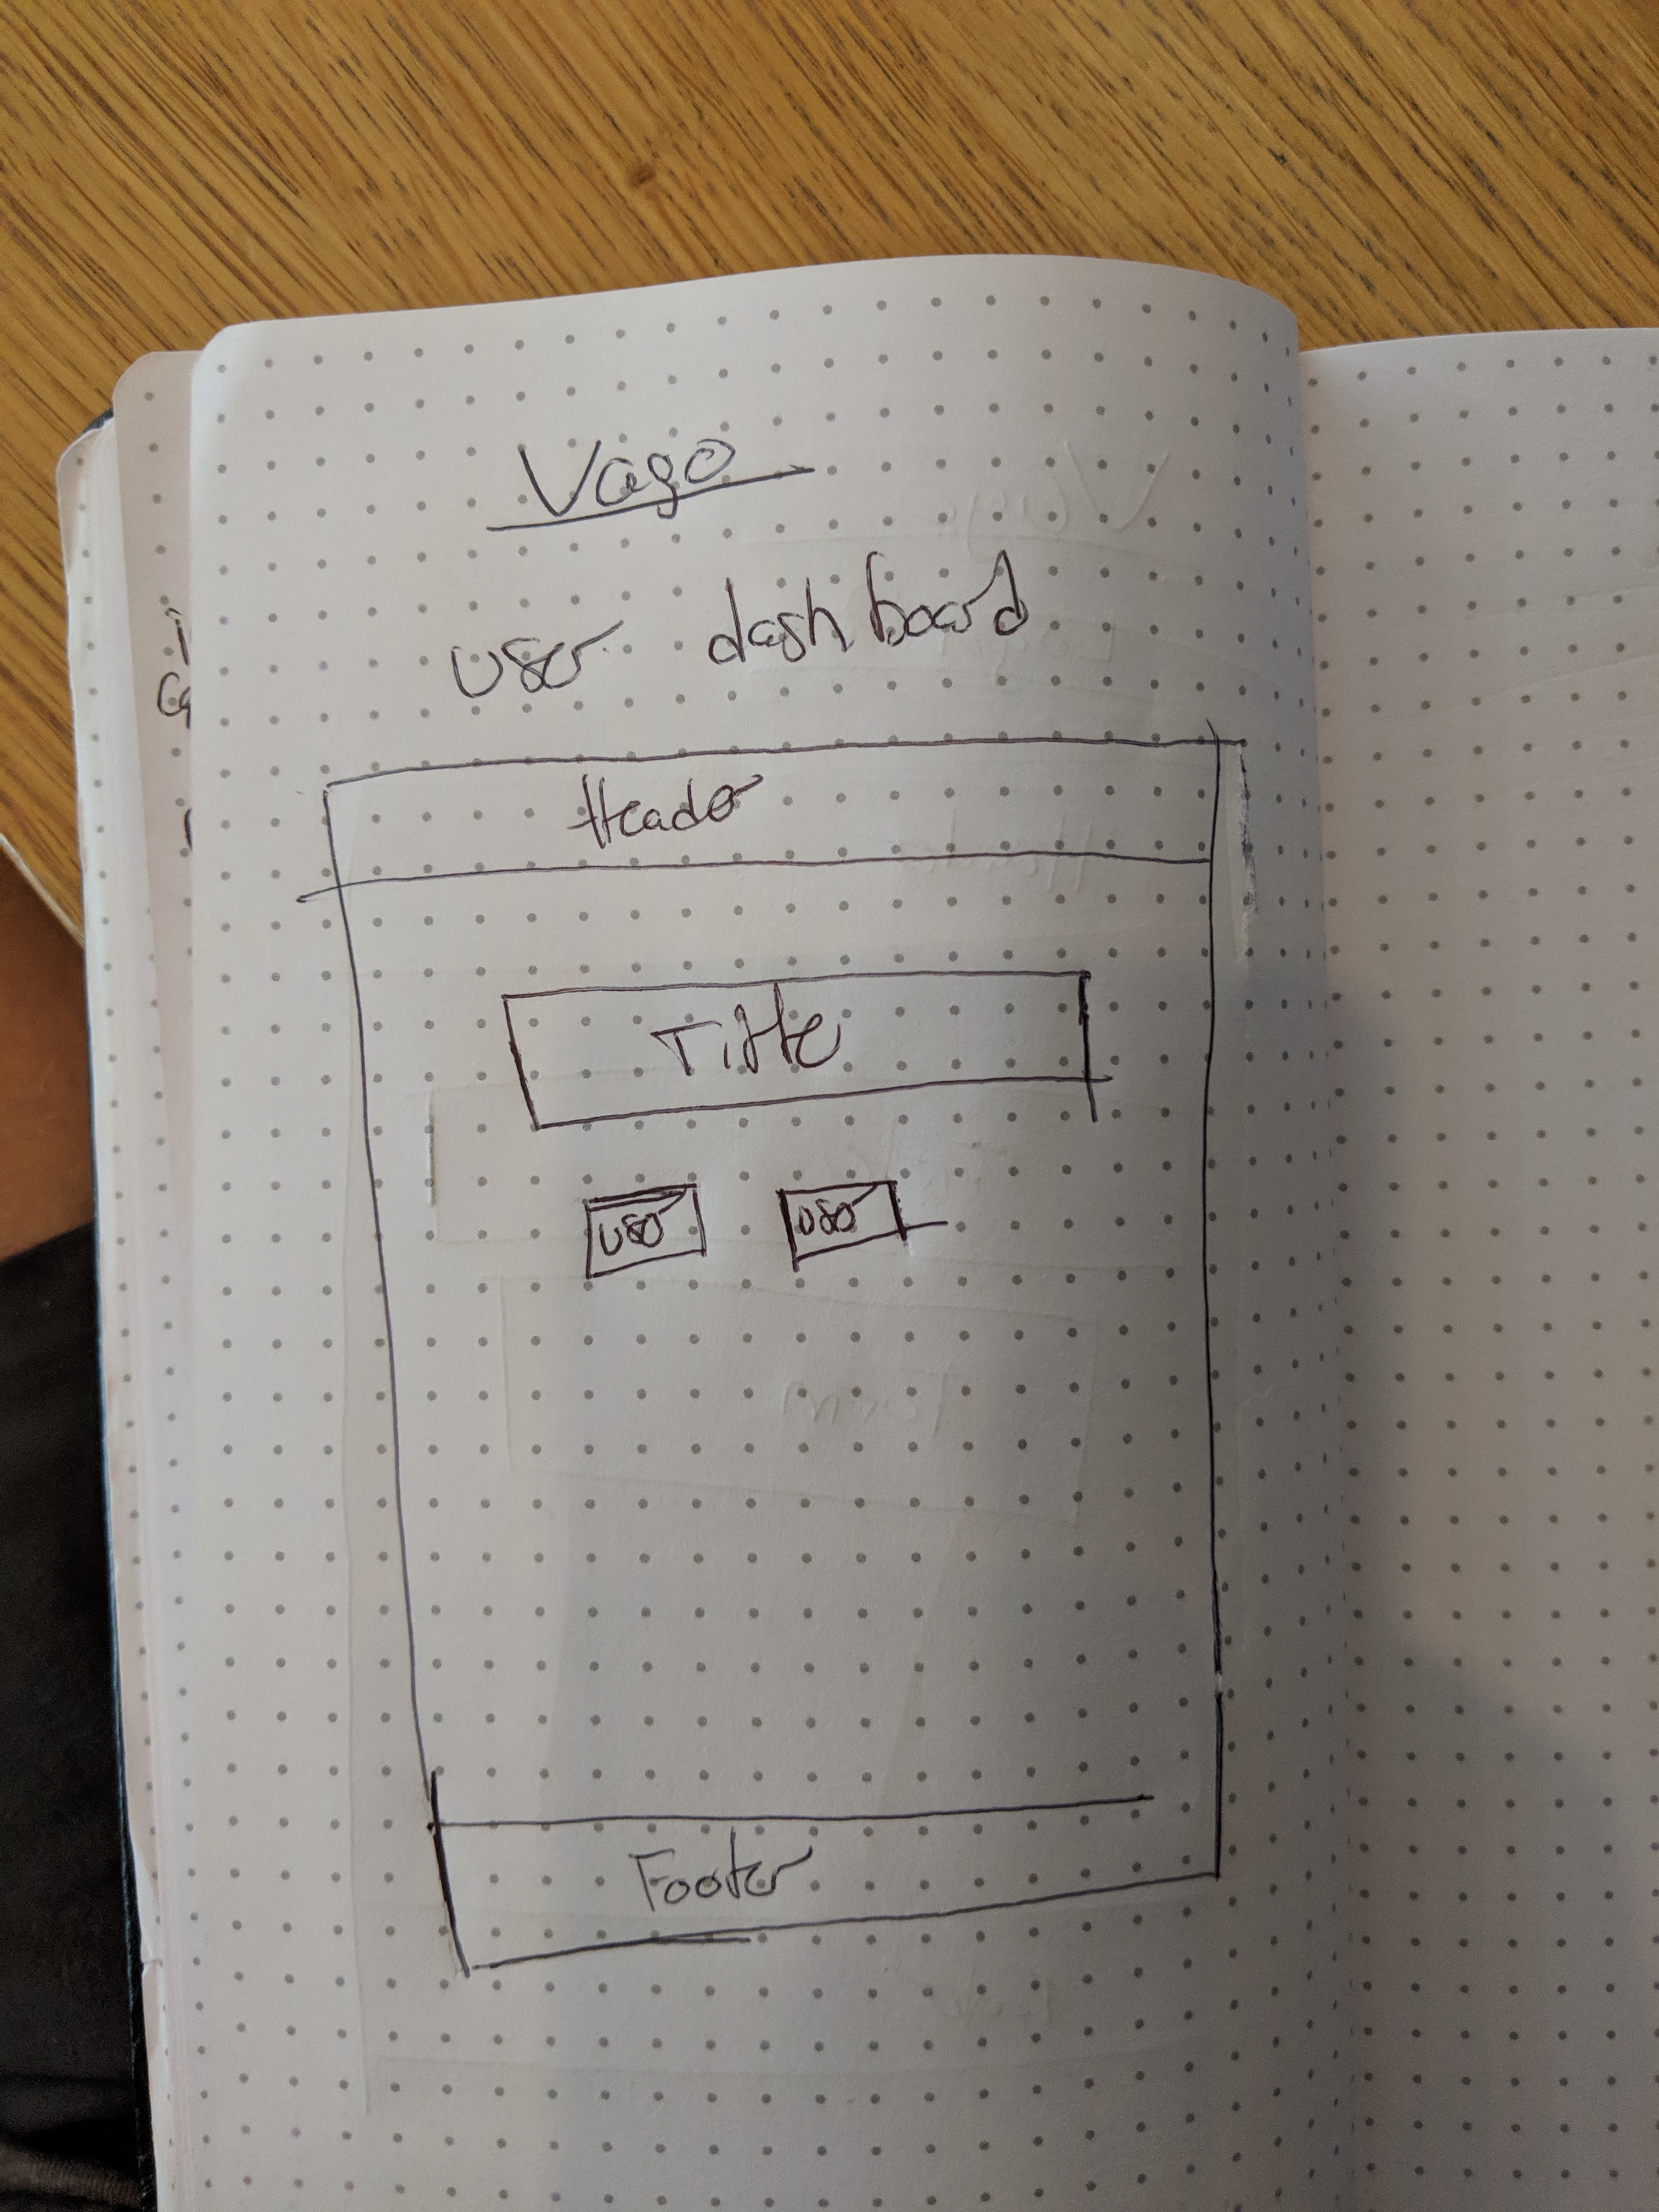 Vago
user dashboard
Header
Title
user user
Footer